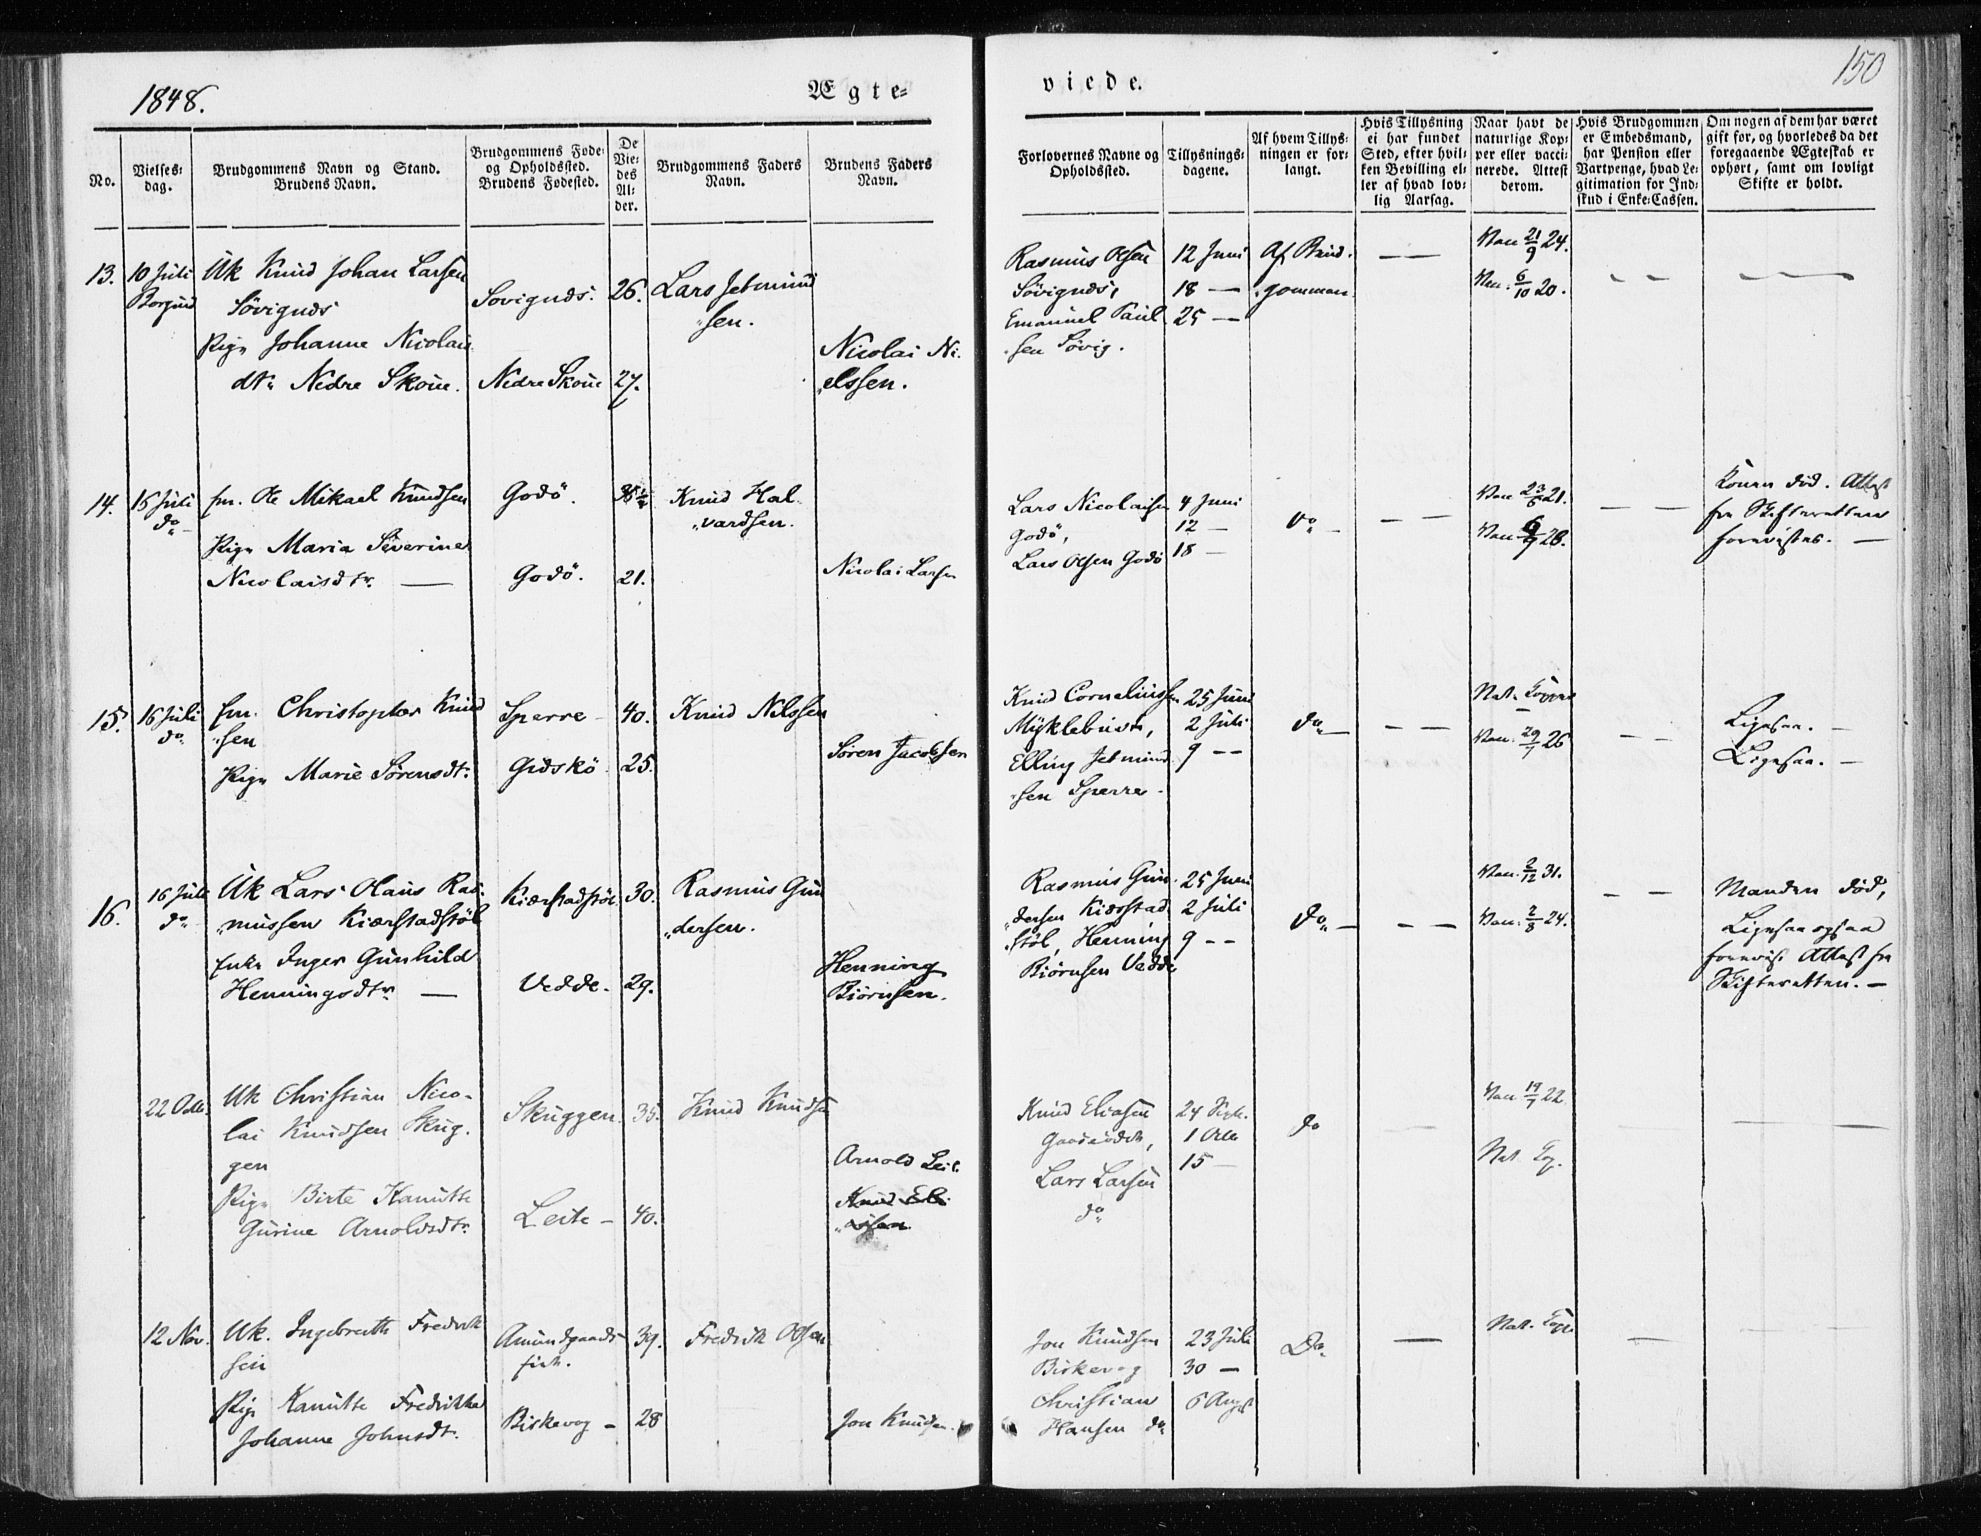 1848.
Ægte=
viede.
150
No.
Vielses=
dag.
Brudgommens Navn og Stand.
Brudens Navn.
Brudgommens Føde=
og Opholdssted.
Brudens Fødested.
De
Vie=
des
Al=
der.
Brudgommens Faders
Navn.
Brudens Faders
Navn.
Forlovernes Navne og
Opholdssted.
Tillysnings=
dagene.
Af hvem Tillys=
ningen er for=
langt.
Hvis Tillysning
ei har fundet
Sted, efter hvil=
ken Bevilling el=
ler af hvad lov=
lig Aarsag.
Naar havt de
naturlige Kop=
per eller vacci=
nerede. Attest
derom.
Hvis Brudgommen
er Embedsmand,
har Pension eller
Vartpenge, hvad Le=
gitimation for Ind=
skud i Enke=Cassen.
Om nogen af dem har været
gift før, og hvorledes da det
foregaaende Ægteskab er
ophørt, samt om lovligt
Skifte er holdt.
13.
10 Juli
Borgund
Uk Knud Johan Larsen
Søvignds
Pige Johanne Nicolai
dtr Nedre Skoue.
Sovignds.
Nedre Skoue
26.
27.
Lars Jetmund
"sen.
Nicolai Ni.
"elssen.
Rasmus Olsen
Søvignds,
Emanuel Paul
"sen Søvig.
12 Juni
18 —
25 —
Af Brud.
gommen
Vac. 21/9 24.
Vac. 6/10 20.
14.
15 Juli
do
fm. Ole Mikael Knudsen
Pige Maria Severine
Nicolaisdtr. —
Godö.
Godö.
21.
Knud Hal
"vardsen.
Nicolai Larsen
Lars Nicolaisen
Godö,
Lars Olsen Godö
4 Juni
12 —
18 —
Do —
21.
28.
Konen død. Attest
fra Skifteretten
forevistes. —
15.
16 Juli
do
fm. Christopher Knud
"sen
Pige Marie Sørensdtr.
Sperre —
Gidskö
40.
25.
Knud Nilssen
Søren Jacobsen
Knud Corneliussen
Myklebust,
Elling Jetmund
"sen Sperre.
25 Juni
2 Juli
9 — —
do —
Nat. Kopper
Vac. 29/7 26
Ligesaa. —
Ligesaa. —
16.
16 Juli
do
Uk Lars Olaus Ras
"mussen Kiærstadstöl
Enke Inger Gunhild
Henningsdtr. —
Kiærstadstöl
Vedde.
30.
29.
Rasmus Gun
"dersen.
Henning
Biörnsen.
Rasmus Gun
"dersen Kiærstad
"stöl, Henning
Biörnsen Vedde
25 Juni
2 Juli
9 — —
do —
Vac. 2/12 31.
Vac. 2/8 24.
Manden død,
Ligesaa ogsaa
forevist Attest fra
Skifteretten. —
22 Octb.
Uk Christian Nico-
lai Knudsen Skug.
gen
Pige Birte Kanutte
Gurine Arnoldsdtr.
Skuggen.
Leite —
35.
40.
Knud Knudsen
Arnold Leit.
Knud Eli
"asen
Knud Eliasen
Lars Larsen
do
24 Sept.
1 Octb
15 —
do
Vac 19/7 22
Nat. Kop.
12 Nov.
Uk. Ingebreth Fredrik
sen
Pige Kanutte Fredrikke
Johanne Johnsdtr.
Amundgaards
Birkevog —
39.
28
Fredrik Olsen
Jon Knudsen
Jon Knudsen
Birkevog
Christian
Hansen do
23 Juli
30 —
6 Augst
Do.
Nat. Kop.